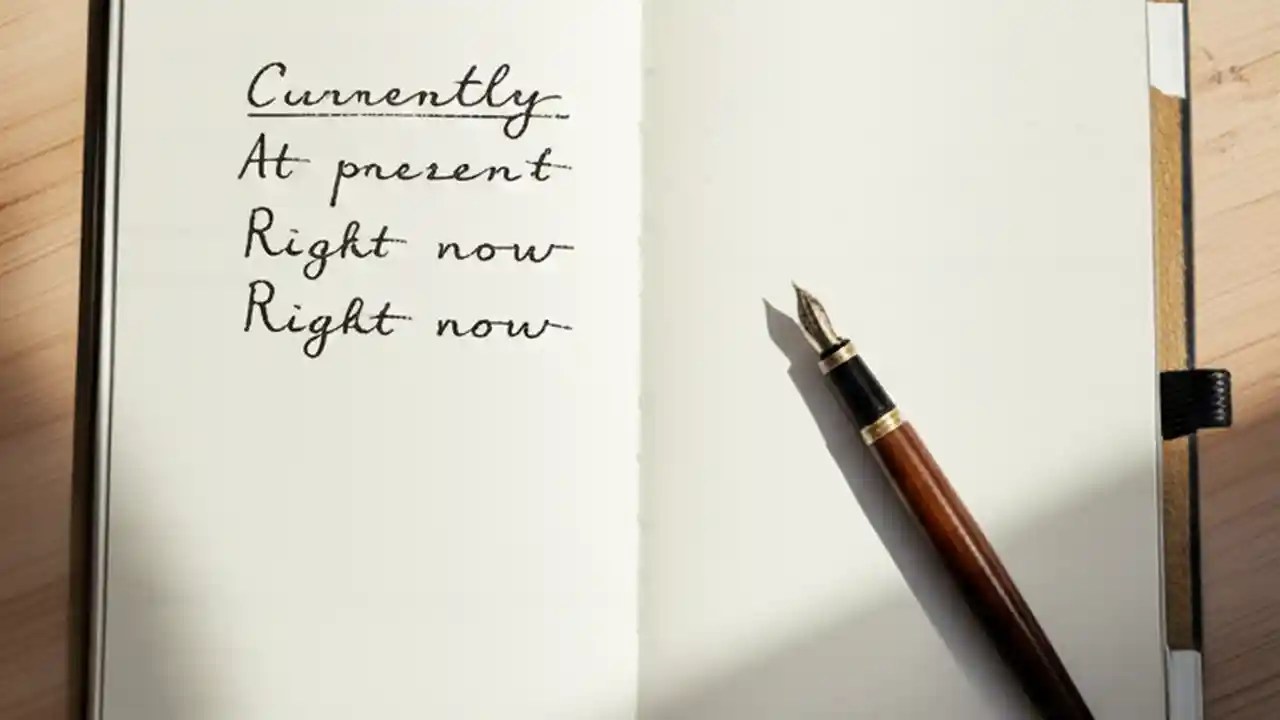 Currently
At present
Right now
Right now